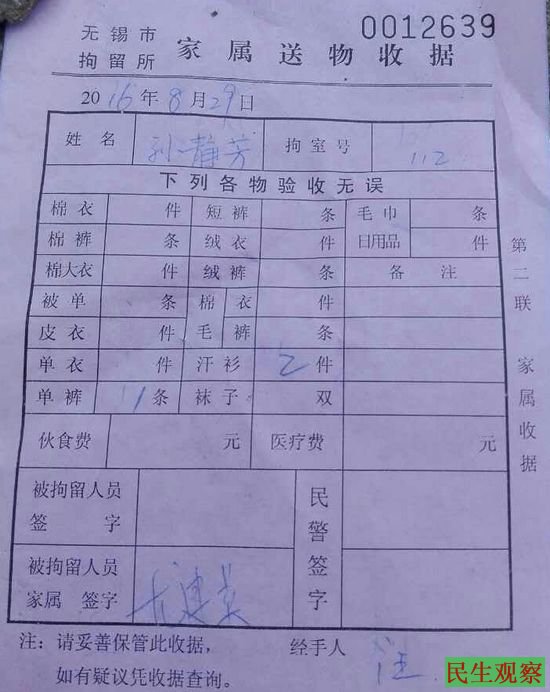 0012639
无锡市
拘留所 家属送物收据
2016年8月29日
姓名 孙静芳 拘室号 112
下列各物验收无误
棉衣 件 短裤 条 毛巾 条
棉裤 条 绒衣 件 日用品 件
棉大衣 件 绒裤 条 备注
被单 条 棉衣 件
皮衣 件 毛裤 条
单衣 件 汗衫 2件
单裤 条 袜子 双
伙食费 元 医疗费 元
被拘留人员
签字
民警签字
被拘留人员
家属 签字
注：请妥善保管此收据， 经手人 汪
如有疑议凭收据查询。
第二联 家属收据
民生观察